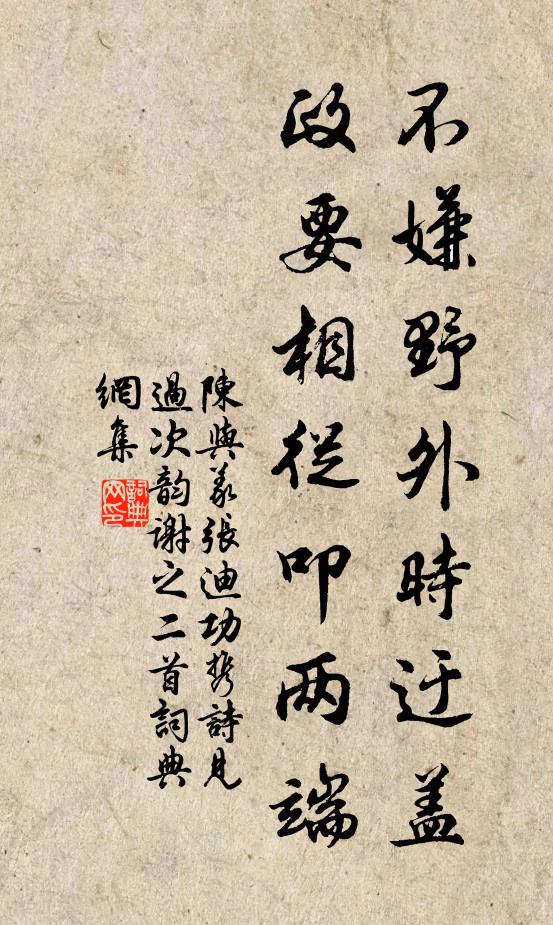 不嫌野外時迂盖
政要相從叩两端
陳與義張迪功攜詩見
過次韵謝之二首詞典
網集
詞典网印